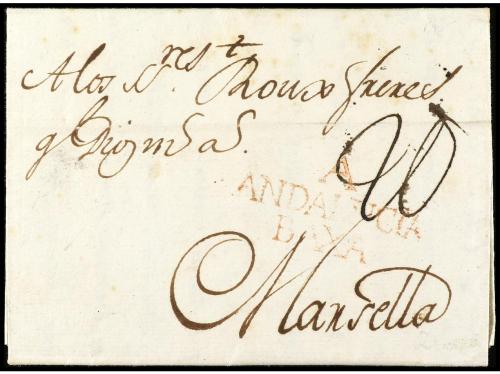 A los S.res Roux freres
q Dios m a.
20
A
ANDALUCIA
BAXA
Marsella